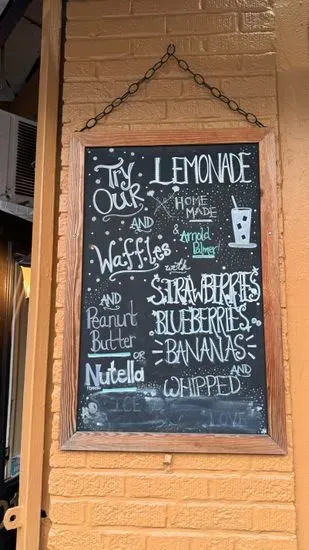 TRY OUR LEMONADE
HOME MADE
AND
& Arnold Palmer
Waffles with
STRAWBERRIES
BLUEBERRIES
BANANAS
AND
WHIPPED
AND
Peanut Butter
OR
Nutella
ICE
LOVE